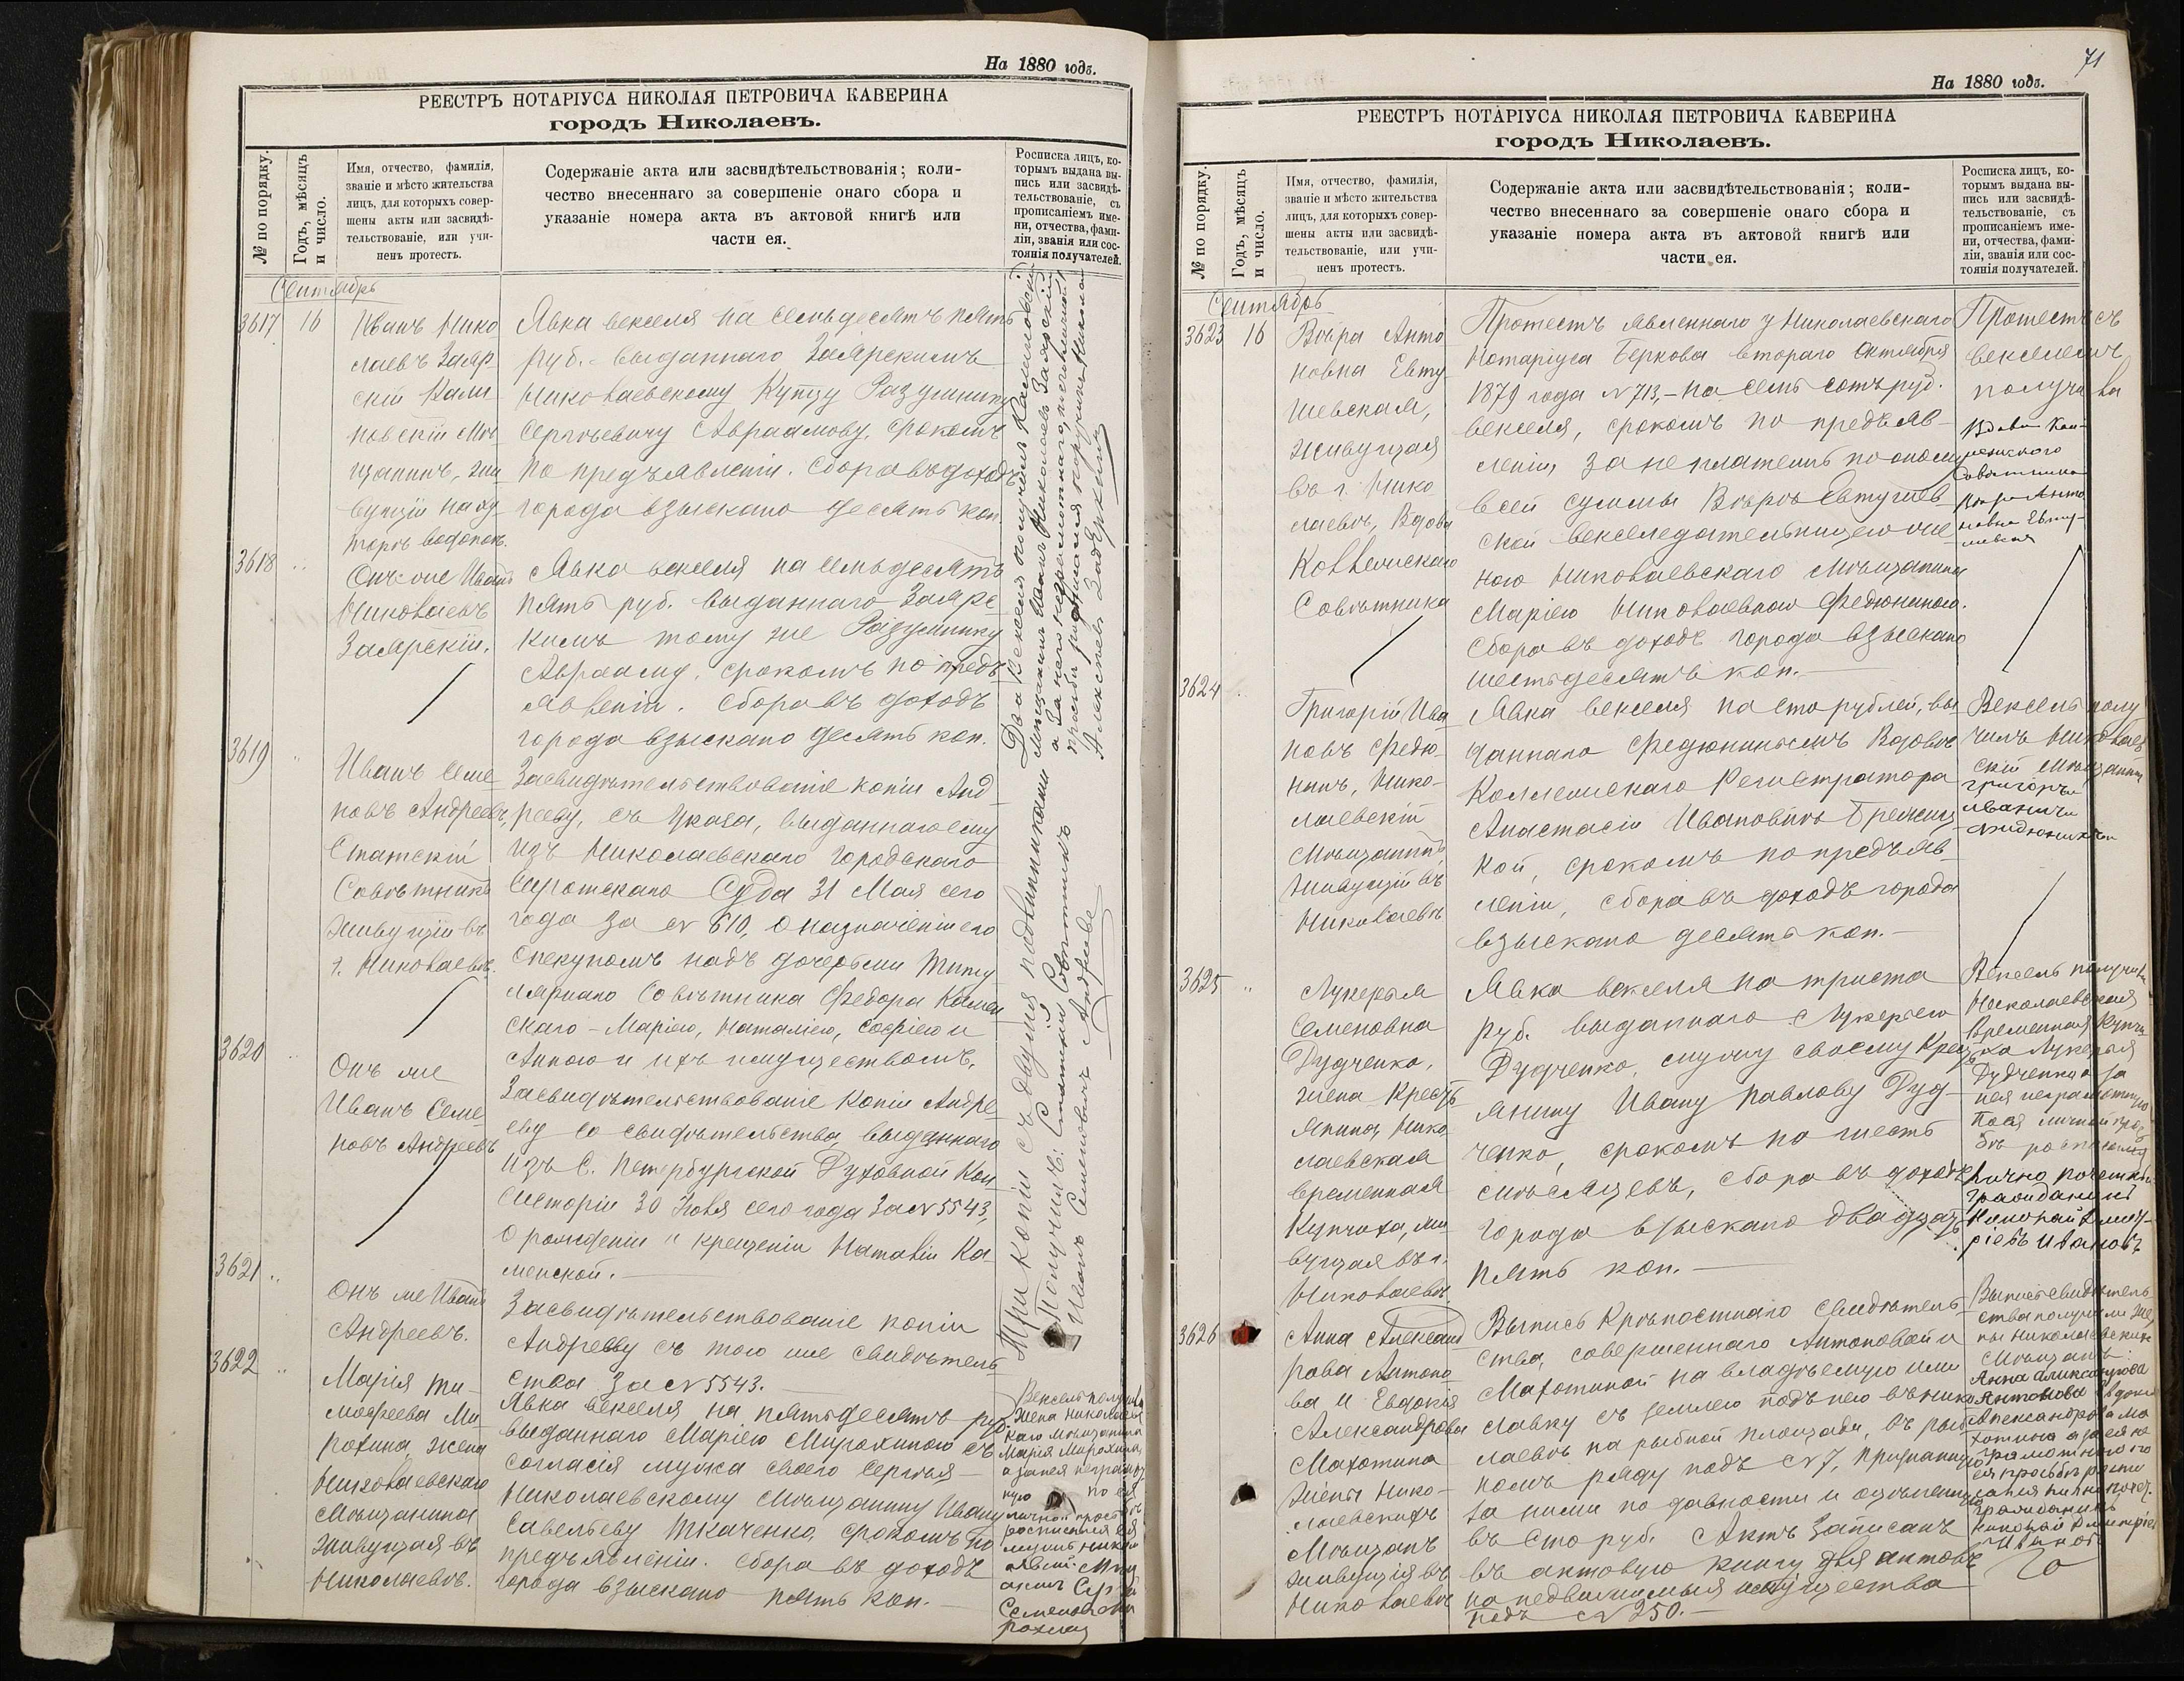 На 1880 годъ.
РЕЕСТРЪ НОТАРІУСА НИКОЛАЯ ПЕТРОВИЧА КАВЕРИНА
городъ Николаевъ.
№ по порядку.
Годъ, мѣсяцъ
и число.
Имя, отчество, фамилія,
званіе и мѣсто жительства
лицъ, для которыхъ совер-
шены акты или засвидѣ-
тельствованіе, или учи-
ненъ протестъ.
Содержаніе акта или засвидѣтельствованія; коли-
чество внесеннаго за совершеніе онаго сбора и
указаніе номера акта въ актовой книгѣ или
части ея.
Росписка лицъ, ко-
торымъ выдана вы-
пись или засвидѣ-
тельствованіе, съ
прописаніемъ име-
ни, отчества, фами-
ліи, званія или сос-
тоянія получателей.
Сентябрь
3617
16
Иванъ Нико
лаевъ Заяр-
скій
щанинъ, жи
вущій на ху
торѣ водопой.
Явка векселя на семьдесятъ пять
руб. выданнаго Заярскимъ
Николаевскому Купцу Разумнику
Сергѣевичу Авраамову, срокомъ
по предъявленіи. Сбора въ доходъ
города взыскано десять коп.
3618
Онъ же Иванъ
Николаевъ
Заярскій.
Явка векселя на семьдесятъ
пять руб. выданнаго Заярс
кимъ тому же Разумнику
Авраамову, срокомъ по предъ
явленіи. Сбора въ доходъ
города взыскано десять коп.
Два векселя получилъ
мѣщанинъ Иванъ Николаевъ Заярскій
а за него неграмотнаго, по личной
просьбѣ росписался
Алексѣевъ
3619
Иванъ Семе
новъ Андреевъ,
Статскій
Совѣтникъ
живущій въ
г. Николаевѣ.
Засвидѣтельствованіе копіи Анд
рееву, съ Указа, выданнаго ему
изъ Николаевскаго Городскаго
Сиротскаго Суда 31 Мая сего
года за № 610, о назначеніи его
Опекуномъ надъ дочерьми Титу
лярнаго Совѣтника Федора Камен
скаго - Маріею, Наталіею, Софіею и
Анною и ихъ имуществомъ.
3620
Онъ же
Иванъ Семе
новъ Андреевъ
Засвидѣтельствованіе копіи Андре
еву со свидѣтельства, выданнаго
изъ С. Петербургской Духовной Кон
систоріи 30 Іюля сего года за № 5543,
о рожденіи и крещеніи Наталіи Ка-
менской.
3621
Онъ же Иванъ
Андреевъ.
Засвидѣтельствованіе копіи
Андрееву съ того же свидѣтель
ства за № 5543.
Три копіи съ двумя подлинниками
получилъ: Статскій Совѣтникъ
Иванъ Семеновичъ Андреевъ
3622
Марія Ти-
мофеева Ми
рохина, жена
Николаевскаго
Мѣщанина
живущая въ
Николаевѣ.
Явка векселя на пятьдесятъ руб.
выданнаго Маріею Мирохиною съ
согласія мужа своего Сергѣя
Николаевскому Мѣщанину Ивану
Савельеву Ткаченко, срокомъ по
предъявленіи. Сбора въ доходъ
города взыскано пять коп.
Вексель получила
жена Николаевс
каго мѣщанина
Марія Мирохина,
а за нея неграмот
ную по ея
личной прось
росписался ея
Семеновъ Ми
рохинъ
71
На 1880 годъ.
РЕЕСТРЪ НОТАРІУСА НИКОЛАЯ ПЕТРОВИЧА КАВЕРИНА
городъ Николаевъ.
№ по порядку.
Годъ, мѣсяцъ
и число.
Имя, отчество, фамилія,
званіе и мѣсто жительства
лицъ, для которыхъ совер-
шены акты или засвидѣ-
тельствованіе, или учи-
ненъ протестъ.
Содержаніе акта или засвидѣтельствованія; коли-
чество внесеннаго за совершеніе онаго сбора и
указаніе номера акта въ актовой книгѣ или
части ея.
Росписка лицъ, ко-
торымъ выдана вы-
пись или засвидѣ-
тельствованіе, съ
прописаніемъ име-
ни, отчества, фами-
ліи, званія или сос-
тоянія получателей.
Сентябрь
3623
16
Вѣра Анто
новна Евту
шевская,
живущая
въ г. Нико
лаевѣ, Вдова
Коллежскаго
Совѣтника
Протестъ явленнаго у Николаевскаго
Нотаріуса Беркова втораго Октября
1879 года № 713, - на семь сотъ руб.
векселя, срокомъ по предъяв-
леніи, за неплатежъ по оному
всей суммы Вѣрѣ Евтушев-
ской векселедательницею же
ною Николаевскаго Мѣщанина
Маріею Николаевною Федюниною.
Сбора въ доходъ города взыскано
шестьдесятъ коп.
Протестъ съ
векселемъ
получила
Вдова Кол-
лежского
Совѣтника
Вѣра Анто
новна Евту-
шевская
3624
Григорій Ива
новъ Федю-
нинъ, Нико-
лаевскій
Мѣщанинъ,
живущій въ
Николаевѣ
Явка векселя на сто рублей, вы
даннаго Федюнинымъ Вдовѣ
Коллежскаго Регистратора
Анастасіи Ивановнѣ
кой, срокомъ по предъяв
леніи, сбора въ доходъ города
взыскано десять коп.
Вексель полу
чилъ Николаев
скій мѣщанин
Григорьи
Иваничъ
Фидюнинъ
3625
Лукерья
Семеновна
Дудченко,
жена Кресть
янина, Нико
лаевская
временная
Купчиха, жи
вущая въ г.
Николаевѣ
Явка векселя на триста
руб. выданнаго Лукерьею
Дудченко, мужу своему Кресть
янину Ивану Павлову Дуд-
ченко, срокомъ на шесть
мѣсяцевъ, сбора въ доходъ
города взыскано двадцать
пять коп.
Вексель получила
Николаевская
временная Купчи
ха Лукерья
Дудченко а за
нея неграмотную
по ея личной прось
бѣ росписался
Лично почетный
гражданинъ
Николай Дмит-
ріевъ Ивановъ
3626
Анна Александ
рова Антоно
ва и Евдокія
Александрова
Махотина
жены Нико-
лаевскихъ
Мѣщанъ
живущія въ
Николаевѣ
Выпись Крѣпостнаго свидѣтель
ства, совершеннаго Антоновой и
Махотиной на владѣемую ими
лавку съ землею подъ нею въ Нико
лаевѣ на рыбной площади, въ рыб
номъ ряду подъ № 7, признанную
за ними по давности и оцѣненную
въ сто руб. Актъ записанъ
въ актовую книгу для актовъ
на недвижимыя имущества
подъ № 250.
Выпись свидѣтель
ства получили же
ны Николаевских
Мѣщанъ
Анна Александрова
Антонова Евдокія
Александрова Ма
хотина а за ея не
грамотного по
ея просьбѣ роспи
сался лично почет.
гражданинъ
Николай Дмитріев
Ивановъ